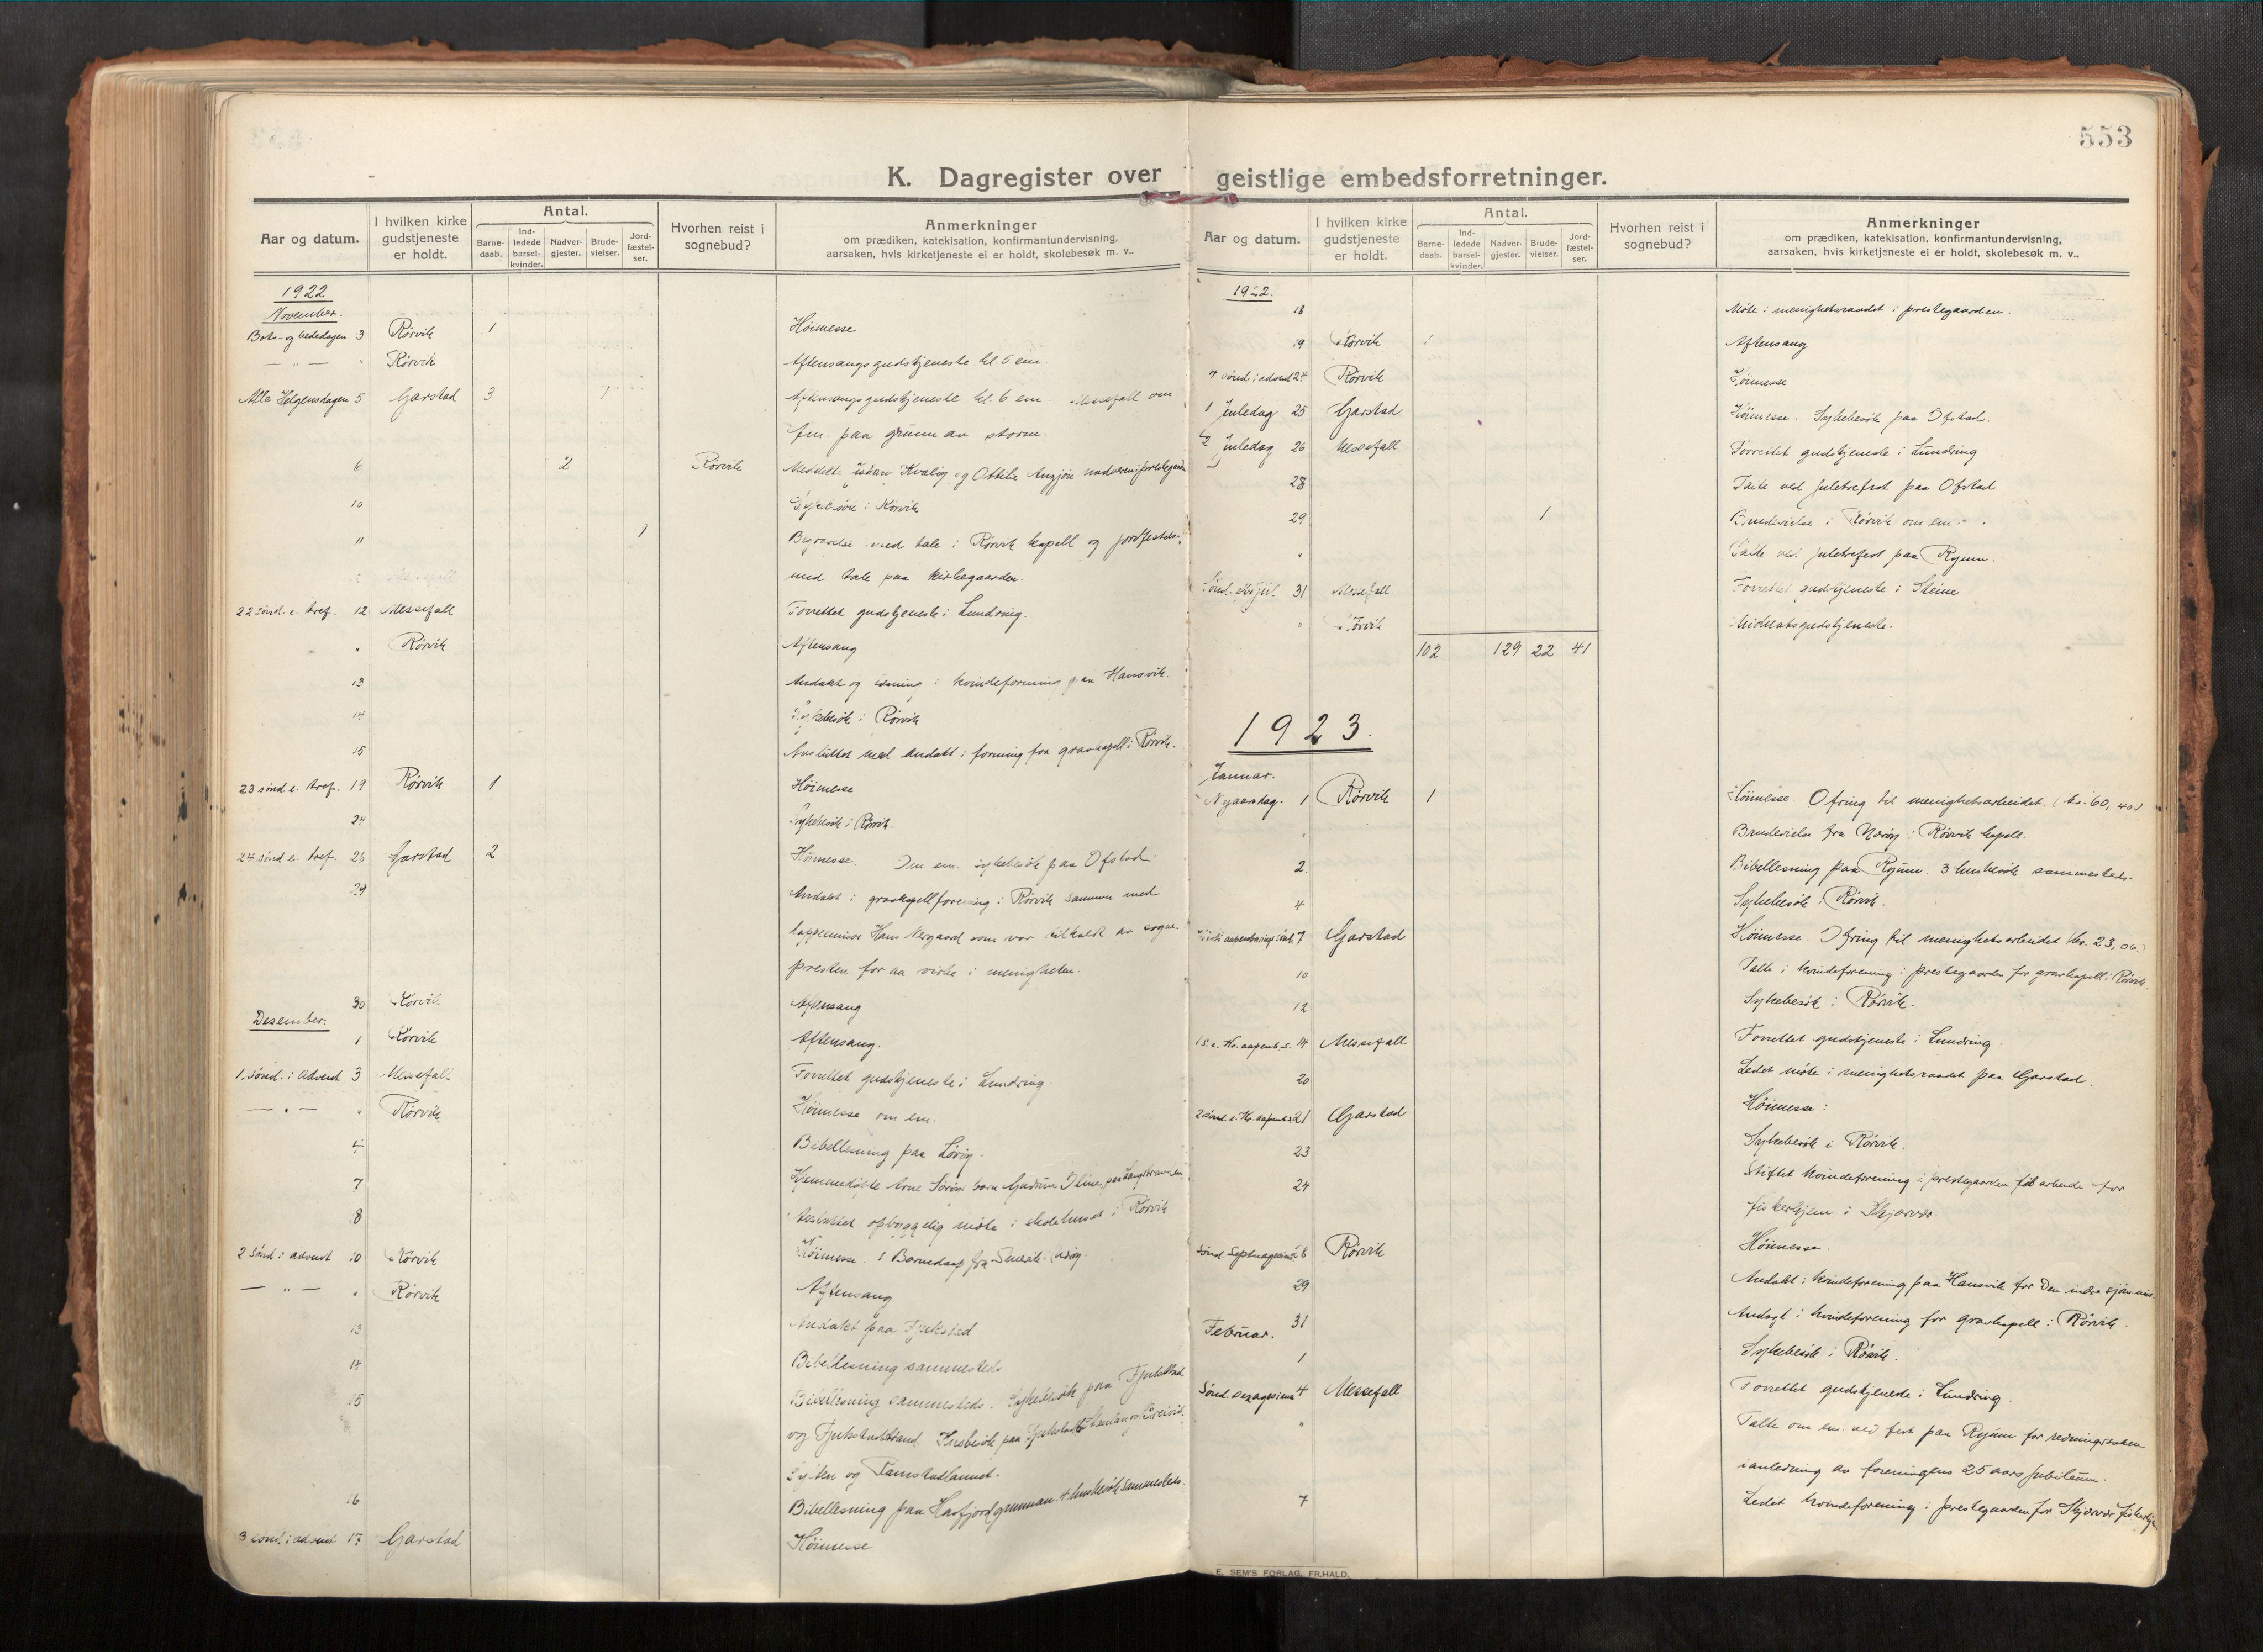 553
K. Dagregister over geistlige embedsforretninger.
Aar og datum.
I hvilken kirke gudstjeneste er holdt.
Antal.
Barne-daab.
Ind-ledede barsel-kvinder.
Nadver-gjester.
Brude-vielser.
Jord-fæstel-ser.
Hvorhen reist i sognebud?
Anmerkninger
om prædiken, katekisation, konfirmantundervisning,
aarsaken, hvis kirketjeneste ei er holdt, skolebesøk m. v..
1922
November.
Bots- og bededagen 3 Rørvik 1 Höimesse
— " — " Rørvik Aftensangsgudstjeneste kl. 5 em.
Alle Helgensdagen 5 Garstad 3 1 Aftensangsgudstjeneste kl. 6 em. Messefall om
fm. paa grunn av storm.
6 2 Rørvik Meddelt Kvaløy og Ottilie nadveren i prestegaarden
10 Sykebesök i Rørvik
11 1 Begravelse med tale i Rørvik kapell og jordfestelse
med tale paa kirkegaarden.
22 sönd. e. tref. 12 Messefall Forrettet gudstjeneste i Lundring.
" Rørvik Aftensang
13 Andakt og læsning i kvindeforening paa Hansvik.
14 Sykebesök i Rørvik
15 Avsluttet med andakt i forening for gravkapell i Rørvik.
23 sönd e. tref. 19 Rørvik 1 Höimesse
24 Sykebesök i Rørvik.
24 sönd e. tref. 26 Garstad 2 Höimesse. Om em. sykebesök paa Ofstad
29 Andakt i gravkapellforening i Rørvik sammen med
Hans Nergaard som var tilkaldt av sogne-
presten for aa virke i menigheten.
30 Rørvik Aftensang
Desember.
1 Rørvik Aftensang.
1. Sönd. i Advent 3 Messefall Forrettet gudstjeneste i Lundring.
— " — " Rørvik Höimesse om em.
4 Bibellesning paa Lörøy.
7 Hjemmedöbte
8 Avsluttet opbyggelig möte i bedehuset i Rørvik
2 Sönd i advent 10 Rørvik Höimesse. 1 Barnedaap fra
— " — " Rørvik Aftensang
13 Andakt paa Fjukstad
14 Bibellesning sammesteds
15 Bibellesning sammesteds. Sykebesök paa Fjukstad
og Fjukstadstrand. Husbesök paa
og Ramstadlandet.
16 Bibellesning paa 4 husbesök sammesteds.
3 sönd. i advent 17 Garstad Höimesse
1922.
18 Möte i menighetsraadet i prestegaarden.
19 Rørvik 1 Aftensang
4 sönd. i advent 24 Rørvik Höimesse
1 Juledag 25 Garstad Höimesse. Sykebesök paa Ofstad.
2 Juledag 26 Messefall Forrettet gudstjeneste i Lundring
28 Talte ved juletrefest paa Ofstad
29 1 Brudevielse i Rørvik om em.
" Talte ved juletrefest paa Ryum.
Sönd. 31 Messefall Forrettet gudstjeneste i Steine
" Rørvik Midnatsgudstjeneste.
102 129 22 41
1923.
Januar.
Nyaarsdag. 1 Rørvik 1 Höimesse. Ofring til menighetsarbeidet. (kr. 60,40)
" Brudevielse fra Nærøy i Rørvik kapell.
2. Bibellesning paa Ryum. 3 husbesök sammesteds.
4 Sykebesök i Rørvik.
7 Garstad Höimesse. Ofring til menighetsarbeidet
10 Talte i kvindeforening i prestegaarden for gravkapell i Rørvik.
12 Sykebesök i Rørvik.
1 s. e. Kr. aapenb. s. 14 Messefall Forrettet gudstjeneste i Lundring.
20 Ledet möte i menighetsraadet paa Garstad.
2 sönd. e. Kr. aapenb. 21 Garstad Höimesse.
23 Sykebesök i Rørvik.
24 Stiftet kvindeforening i prestegaarden til arbeide for
fiskerhjem i Skjærvær.
Sönd. Septuagesima 28 Rørvik Höimesse.
29 Andakt i kvindeforening paa Hansvik for Den indre sjömannsm.
31 Andagt i kvindeforening for gravkapell i Rørvik.
Februar.
1 Sykebesök i Rørvik.
Sönd. sexagesima 4 Messefall Forrettet gudstjeneste i Lundring.
" Talte om em. ved fest paa Ryum for redningssaken
i anledning av foreningens 25 aars jubileum.
7 Ledet kvindeforening i prestegaarden for Skjærvær fiskerhjem
E. SEM'S FORLAG, FR.HALD.